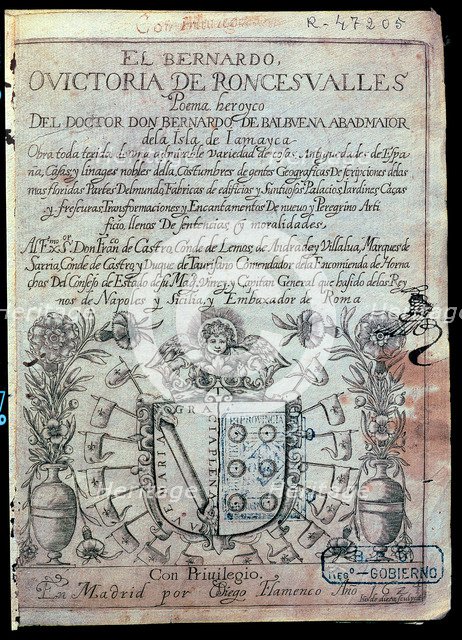 R-47205
EL BERNARDO,
O VICTORIA DE RONCESVALLES
Poema heroyco
DEL DOCTOR DON BERNARDO DE BALBVENA ABAD MAIOR
de la Isla de Iamayca
Obra toda texida de una admirable Variedad de cosas, Antiguedades de Espa
ña, Casas y linages nobles della, Costumbres de gentes Geograficas Descripciones delas
mas floridas Partes Del mundo, Fabricas de edificios y Suntuosos Palacios, Iardines Caças
y frescuras, Transformaciones y Encantamentos De nuevo y Peregrino Arti
ficio, llenos De sentencias y moralidades,
Al Exmo Sor Don Franco de Castro, Conde de Lemos, de Andrade y Villalva, Marques de
Sarria, Conde de Castro y Duque de Taurisano Comendador de la Encomienda de Horna
chos Del Consejo de Estado de su Magd, Virrey y Capitan General que ha sido de los Rey
nos de Napoles y Sicilia, y Embaxador de Roma
AVE MARIA GRACIA PLENA
PROVINCIA
GOBIERNO
Con Priuilegio.
En Madrid por Diego Flamenco Año 162
Heritage
Heritage
Images